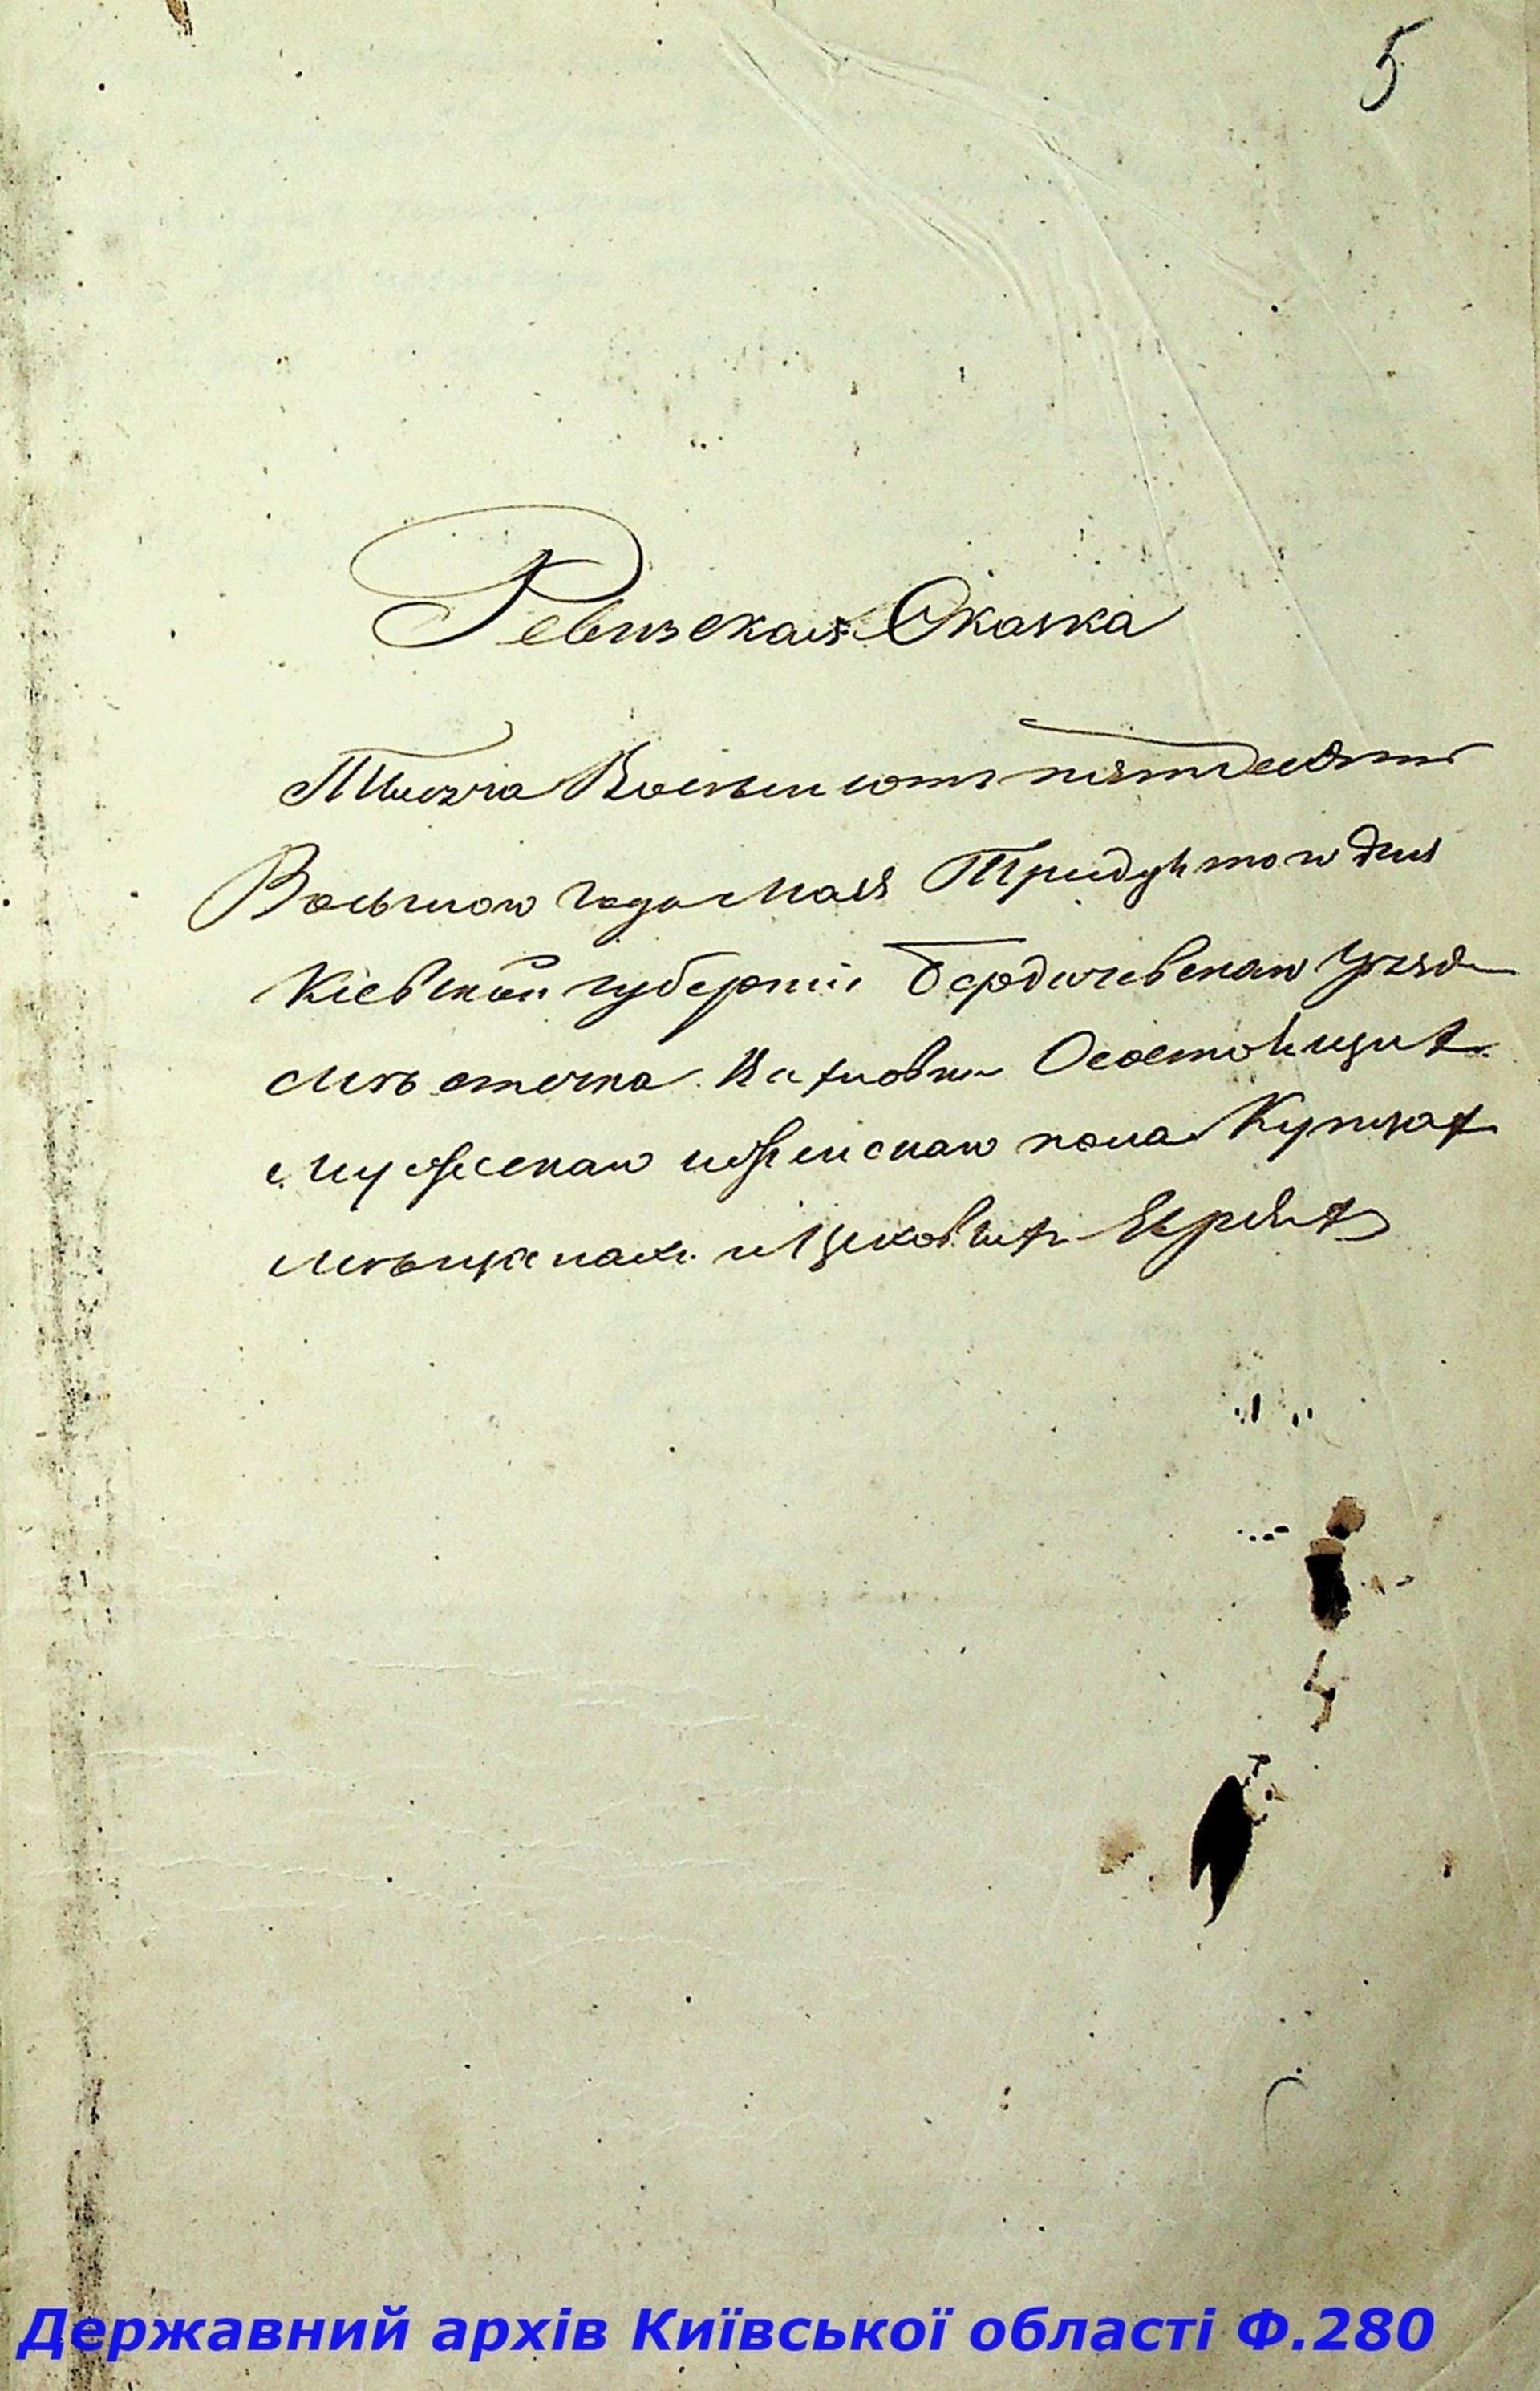 5
Ревизская Сказка
Тысяча Восемьсотъ пятьдесятъ
Восьмого года Мая Тридцатого дня
Кіевской губерніи Бердичевскаго уѣзда
мѣстечка О состоящихъ
мужескаго и женскаго пола Купцахъ
мѣщанахъ и Цеховыхъ Евреяхъ
Державний архів Київської області Ф.280